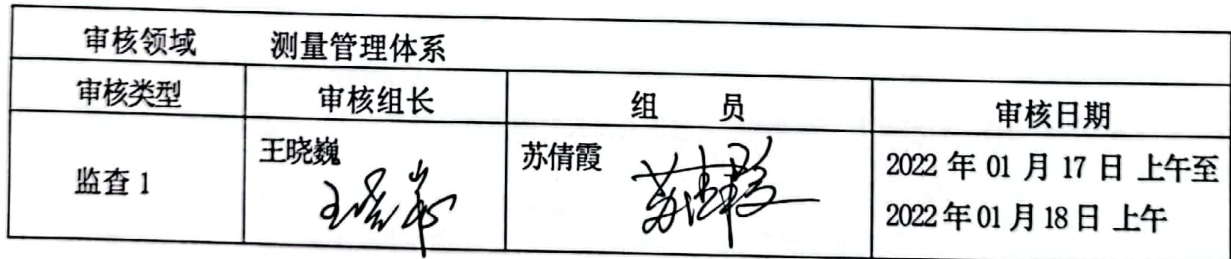 审核领域 测量管理体系
审核类型 审核组长 组 员 审核日期
监查 1 王晓巍 苏倩霞 2022 年 01 月 17 日 上午至
2022 年 01 月 18 日 上午
王晓巍 苏倩霞